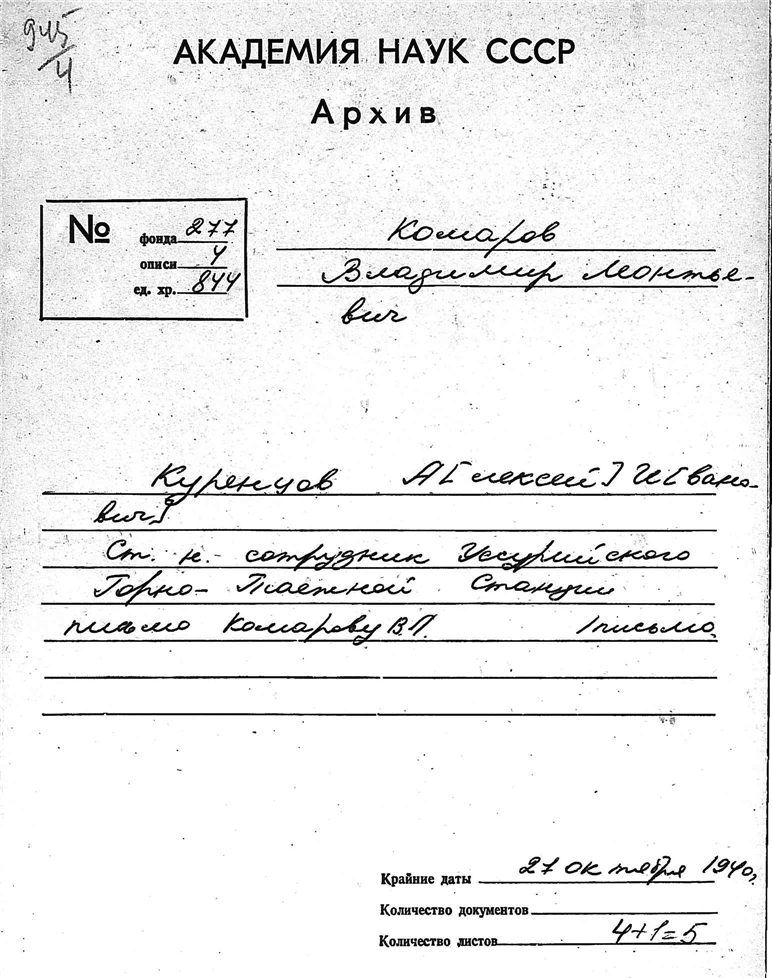 945/4
АКАДЕМИЯ НАУК СССР
Архив
№ фонда 277
описи 4
ед. хр. 844
Комаров
Владимир Леонтье-
вич
Куренцов А[лексей] И[вано-
вич]
Ст. н. сотрудник Уссурийского
Горно-Таежной Станции
письмо Комарову В.Л. 1 письмо
Крайние даты 27 октября 1940г.
Количество документов
Количество листов 4+1=5